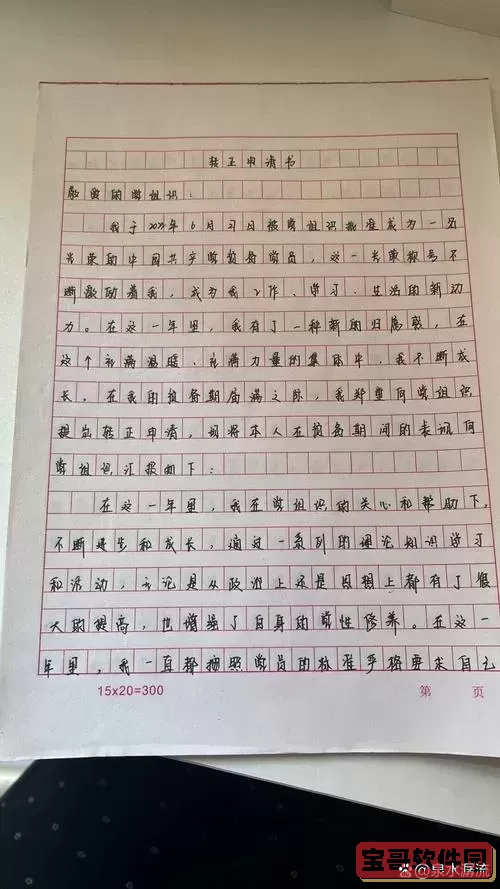 转正申请书
敬爱的党组织：
我于202年6月27日被党组织批准成为一名
光荣的中国共产党预备党员，这一光荣称号不
断激动着我，成为我工作、学习、生活的新动
力。在这一年里，我有了一种新的归属感，在
这个充满温暖、充满力量的集体中，我不断成
长。在我的预备期届满之际，我郑重向党组织
提出转正申请，现将本人在预备期间的表现向
党组织汇报如下：
在这一年里，我在党组织的关心和帮助下，
不断进步和成长，通过一系列的理论知识学习
和活动，无论是从政治上还是思想上都有了很
大的提高，也增强了自身的党性修养。在这一
年里，我一直都按照党员的标准严格要求自己
15x20=300
第 页
宝哥软件园
泉水孱流